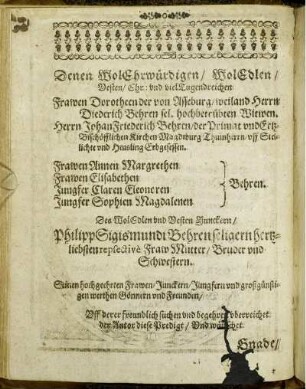 Denen WolEhrwürdigen / WolEdlen /
Vesten / Ehr: vnd vielTugendreichen
Frawen Dorotheen der von Asseburg / weiland Herrn
Diederich Behren sel. hochbetrübten Witwen.
Herrn Johan Friederich Behren / der Primat vnd Ertz-
Bischöfflichen Kirchen Magdeburg Thumherrn / vff
vnd Erbgesessen.
Frawen Annen Margrethen
Frawen Elisabethen
Jungfer Claren Eleonoren
Jungfer Sophien Magdalenen
Behren.
Des WolEdlen vnd Vesten Junckern /
Philipp Sigismundi Behren seligern hertz-
liebsten respectivè Fraw Mutter / Bruder vnd
Schwestern.
Seinen hochgeehrten Frawen / Junckern / Jungfern vnd großgünsti-
gen werthen Gönnern vnd Freunden /
Vff derer freundlich suchen vnd begehren vberreichet
der Autor diese Predigt / Vnd wünschet
Gnade /